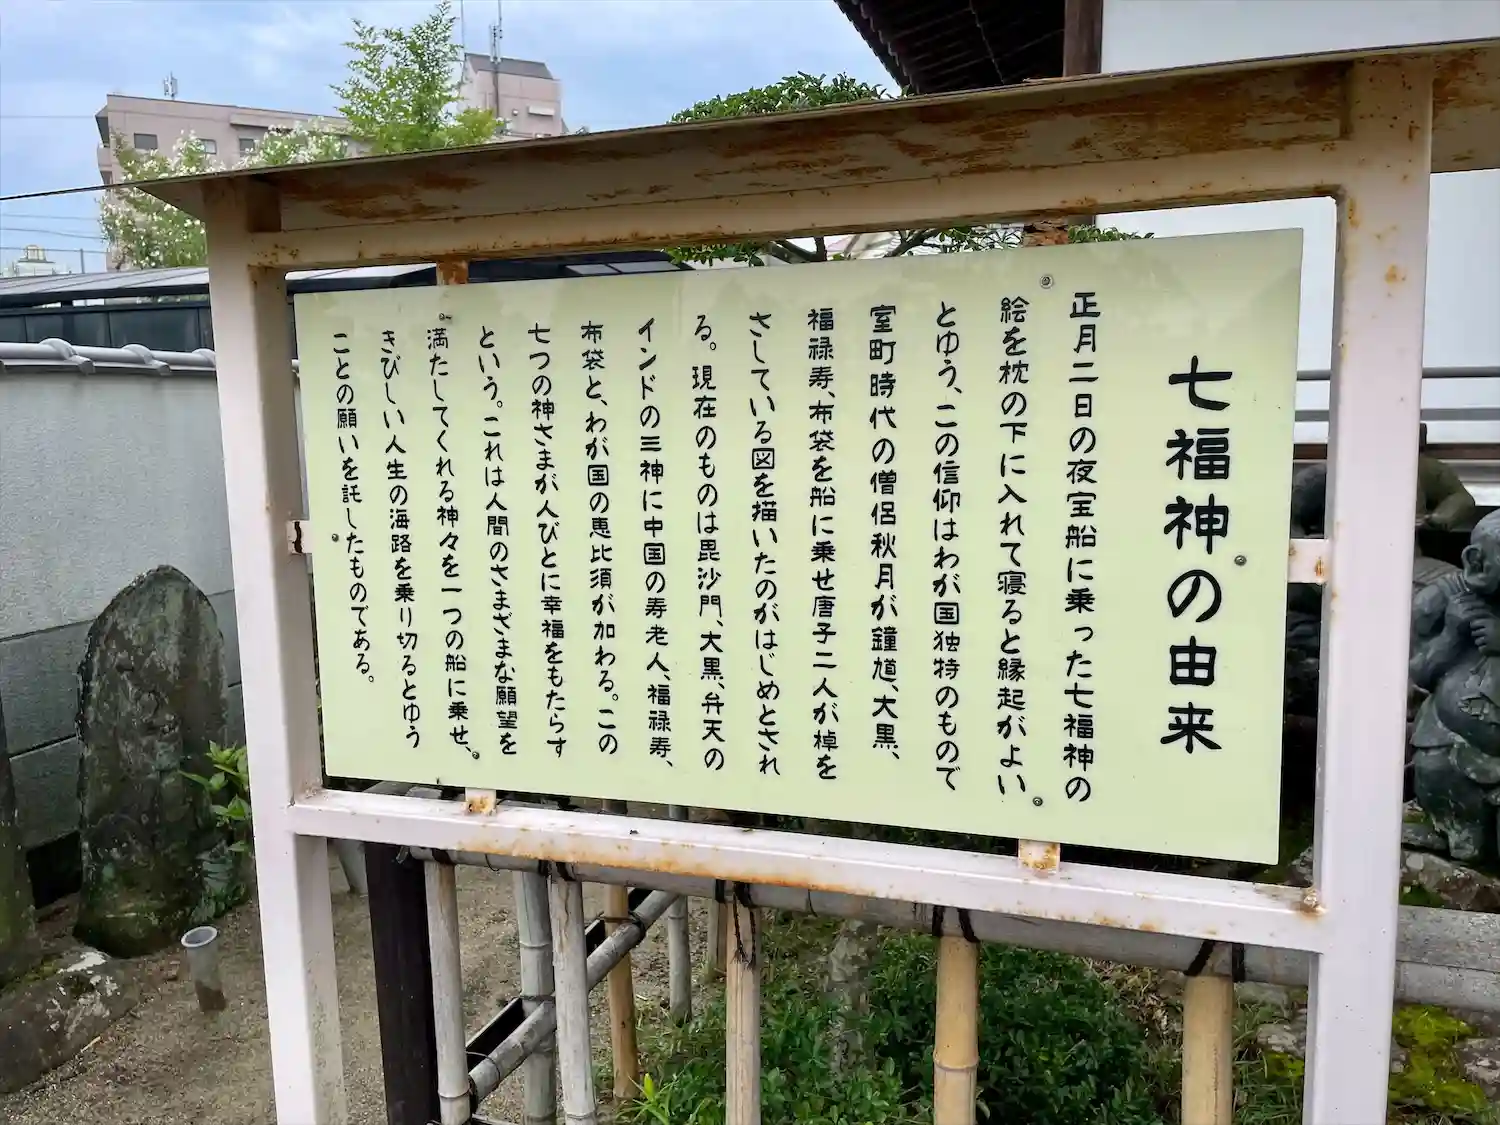 七福神の由来
正月二日の夜宝船に乗った七福神の
絵を枕の下に入れて寝ると縁起がよい
とゆう、この信仰はわが国独特のもので
室町時代の僧侶秋月が鐘馗、大黒、
福禄寿、布袋を船に乗せ唐子二人が棹を
さしている図を描いたのがはじめとされ
る。現在のものは毘沙門、大黒、弁天の
インドの三神に中国の寿老人、福禄寿、
布袋と、わが国の恵比須が加わる。この
七つの神さまが人びとに幸福をもたらす
という。これは人間のさまざまな願望を
満たしてくれる神々を一つの船に乗せ、
きびしい人生の海路を乗り切るとゆう
ことの願いを託したものである。